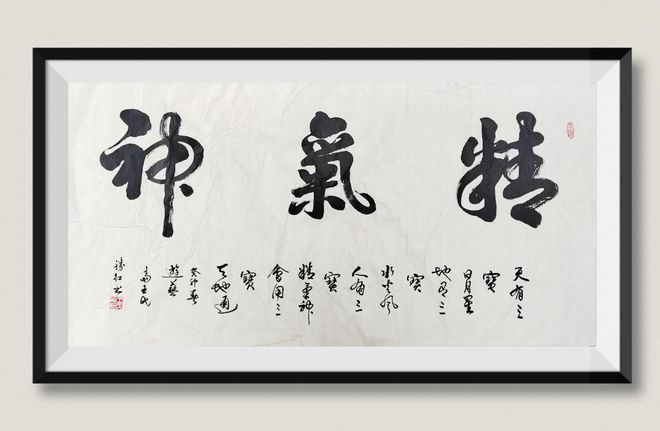 精氣神
天有三
寶
日月星
地有三
寶
水火風
人有三
寶
精氣神
會用三
寶
天地通
癸卯春
遊藝